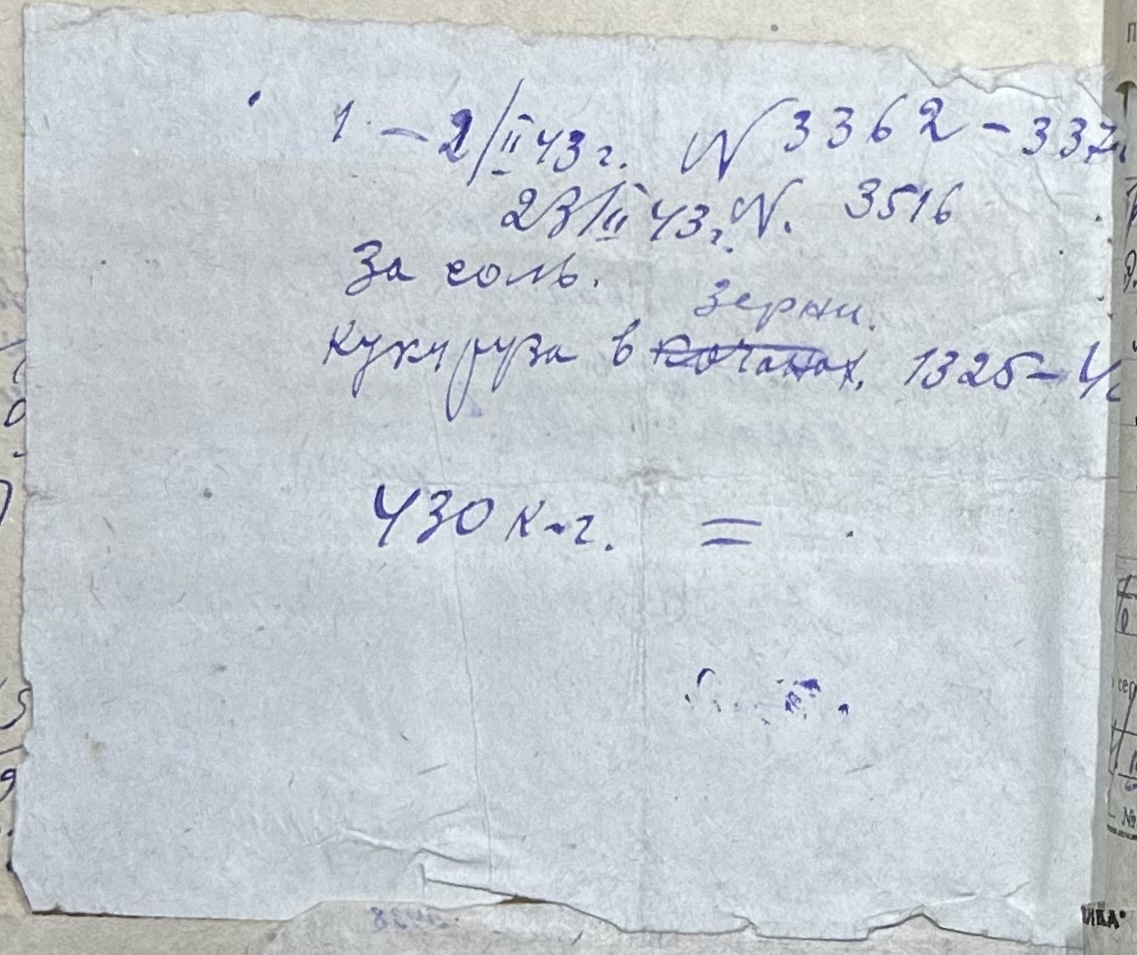 1 – 2/II 43 г. N 3362 – 337
23/II 43 г. N. 3516
За соль.
зерни.
кукуруза в кочанах, 1325 –
430 к-г. =